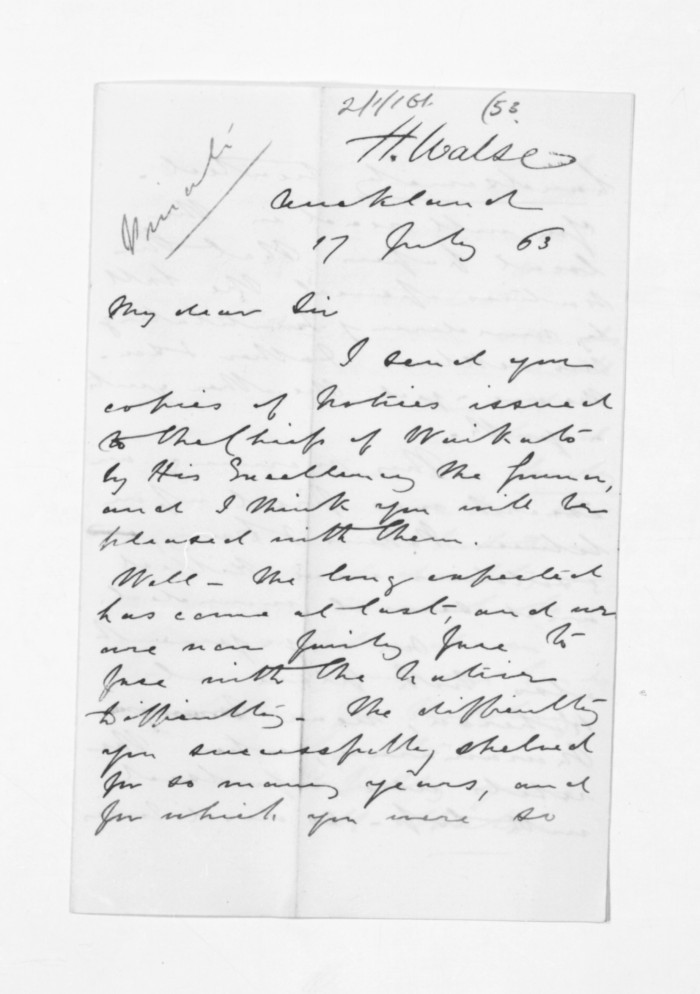 (53
H. Halse
Private
Auckland
17 July 63
My dear Sir
I send you
copies of Notices issued
to the Chiefs of Waikato
by His Excellency the Governor,
and I think you will be
pleased with them.
Well - the long expected
has come at last, and we
are now fairly face to
face with the Native
Difficulty - the difficulty
you successfully shelved
for so many years, and
for which you were so